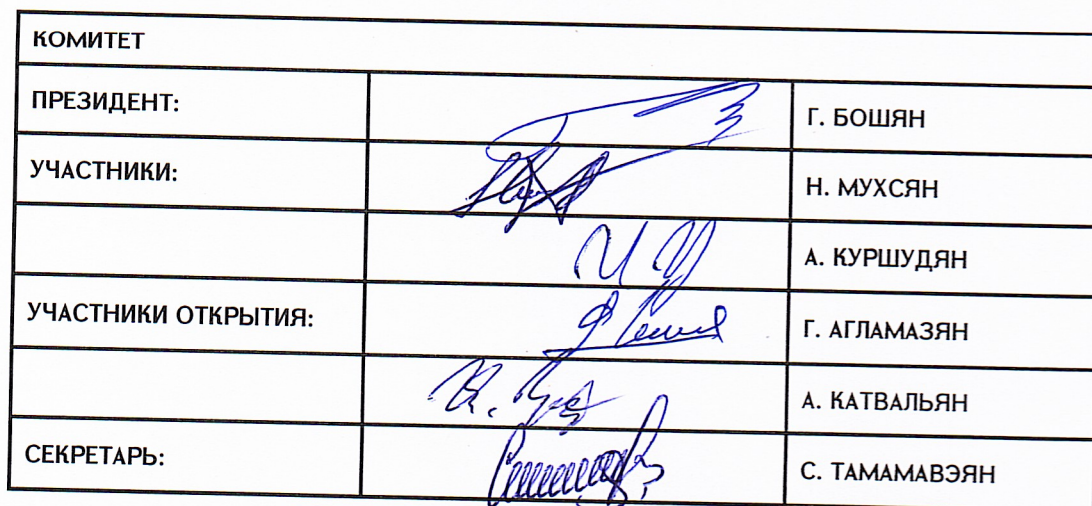 КОМИТЕТ
ПРЕЗИДЕНТ: Г. БОШЯН
УЧАСТНИКИ: Н. МУХСЯН
А. КУРШУДЯН
УЧАСТНИКИ ОТКРЫТИЯ: Г. АГЛАМАЗЯН
А. КАТВАЛЬЯН
СЕКРЕТАРЬ: С. ТАМАМАВЭЯН